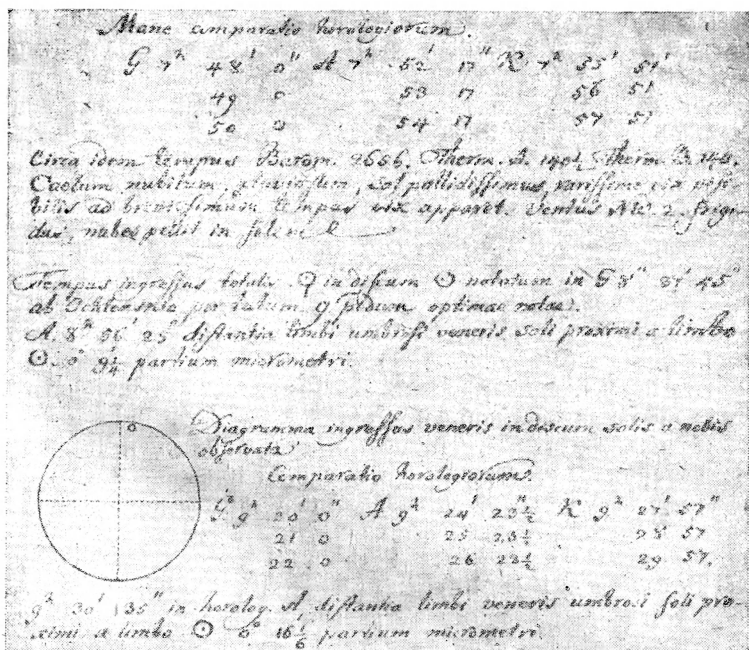 Mane comparatio horologiorum.
G 7h 48' 0" A 7h 52' 17" K 7h 55' 51'
49 0 53 17 56 51
50 0 54 17 57 51
Circa idem tempus Barom. 2656. Therm. A. Therm. B. 144.
Caelum nubilum, pluviosum, Sol pallidissimus, rarissime vix visi-
bilis ad brevissimum tempus vix apparet. Ventus NW. 2. frigi-
dus, nubes in
Tempus ingressus totalis ♀ in discum ☉ notatum in G 8h 31' 45"
ab Ochtenskio per tubum 9 pedum optimae notae.
A. 8h 56' 25" distantia limbi umbrosi veneris soli proximi a limbo
☉ 0° 9¼ partium micrometri.
Diagramma ingressus veneris in discum solis a nobis
observata
Comparatio horologiorum.
G 9h 20' 0" A 9h 24' 23"½ K 9h 27' 57"
21 0 25 23½ 28 57
22 0 26 23½ 29 57.
9h 30' 35" in horolog. A, distantia limbi veneris umbrosi soli pro-
ximi a limbo ☉ 0° 16⅙ partium micrometri.